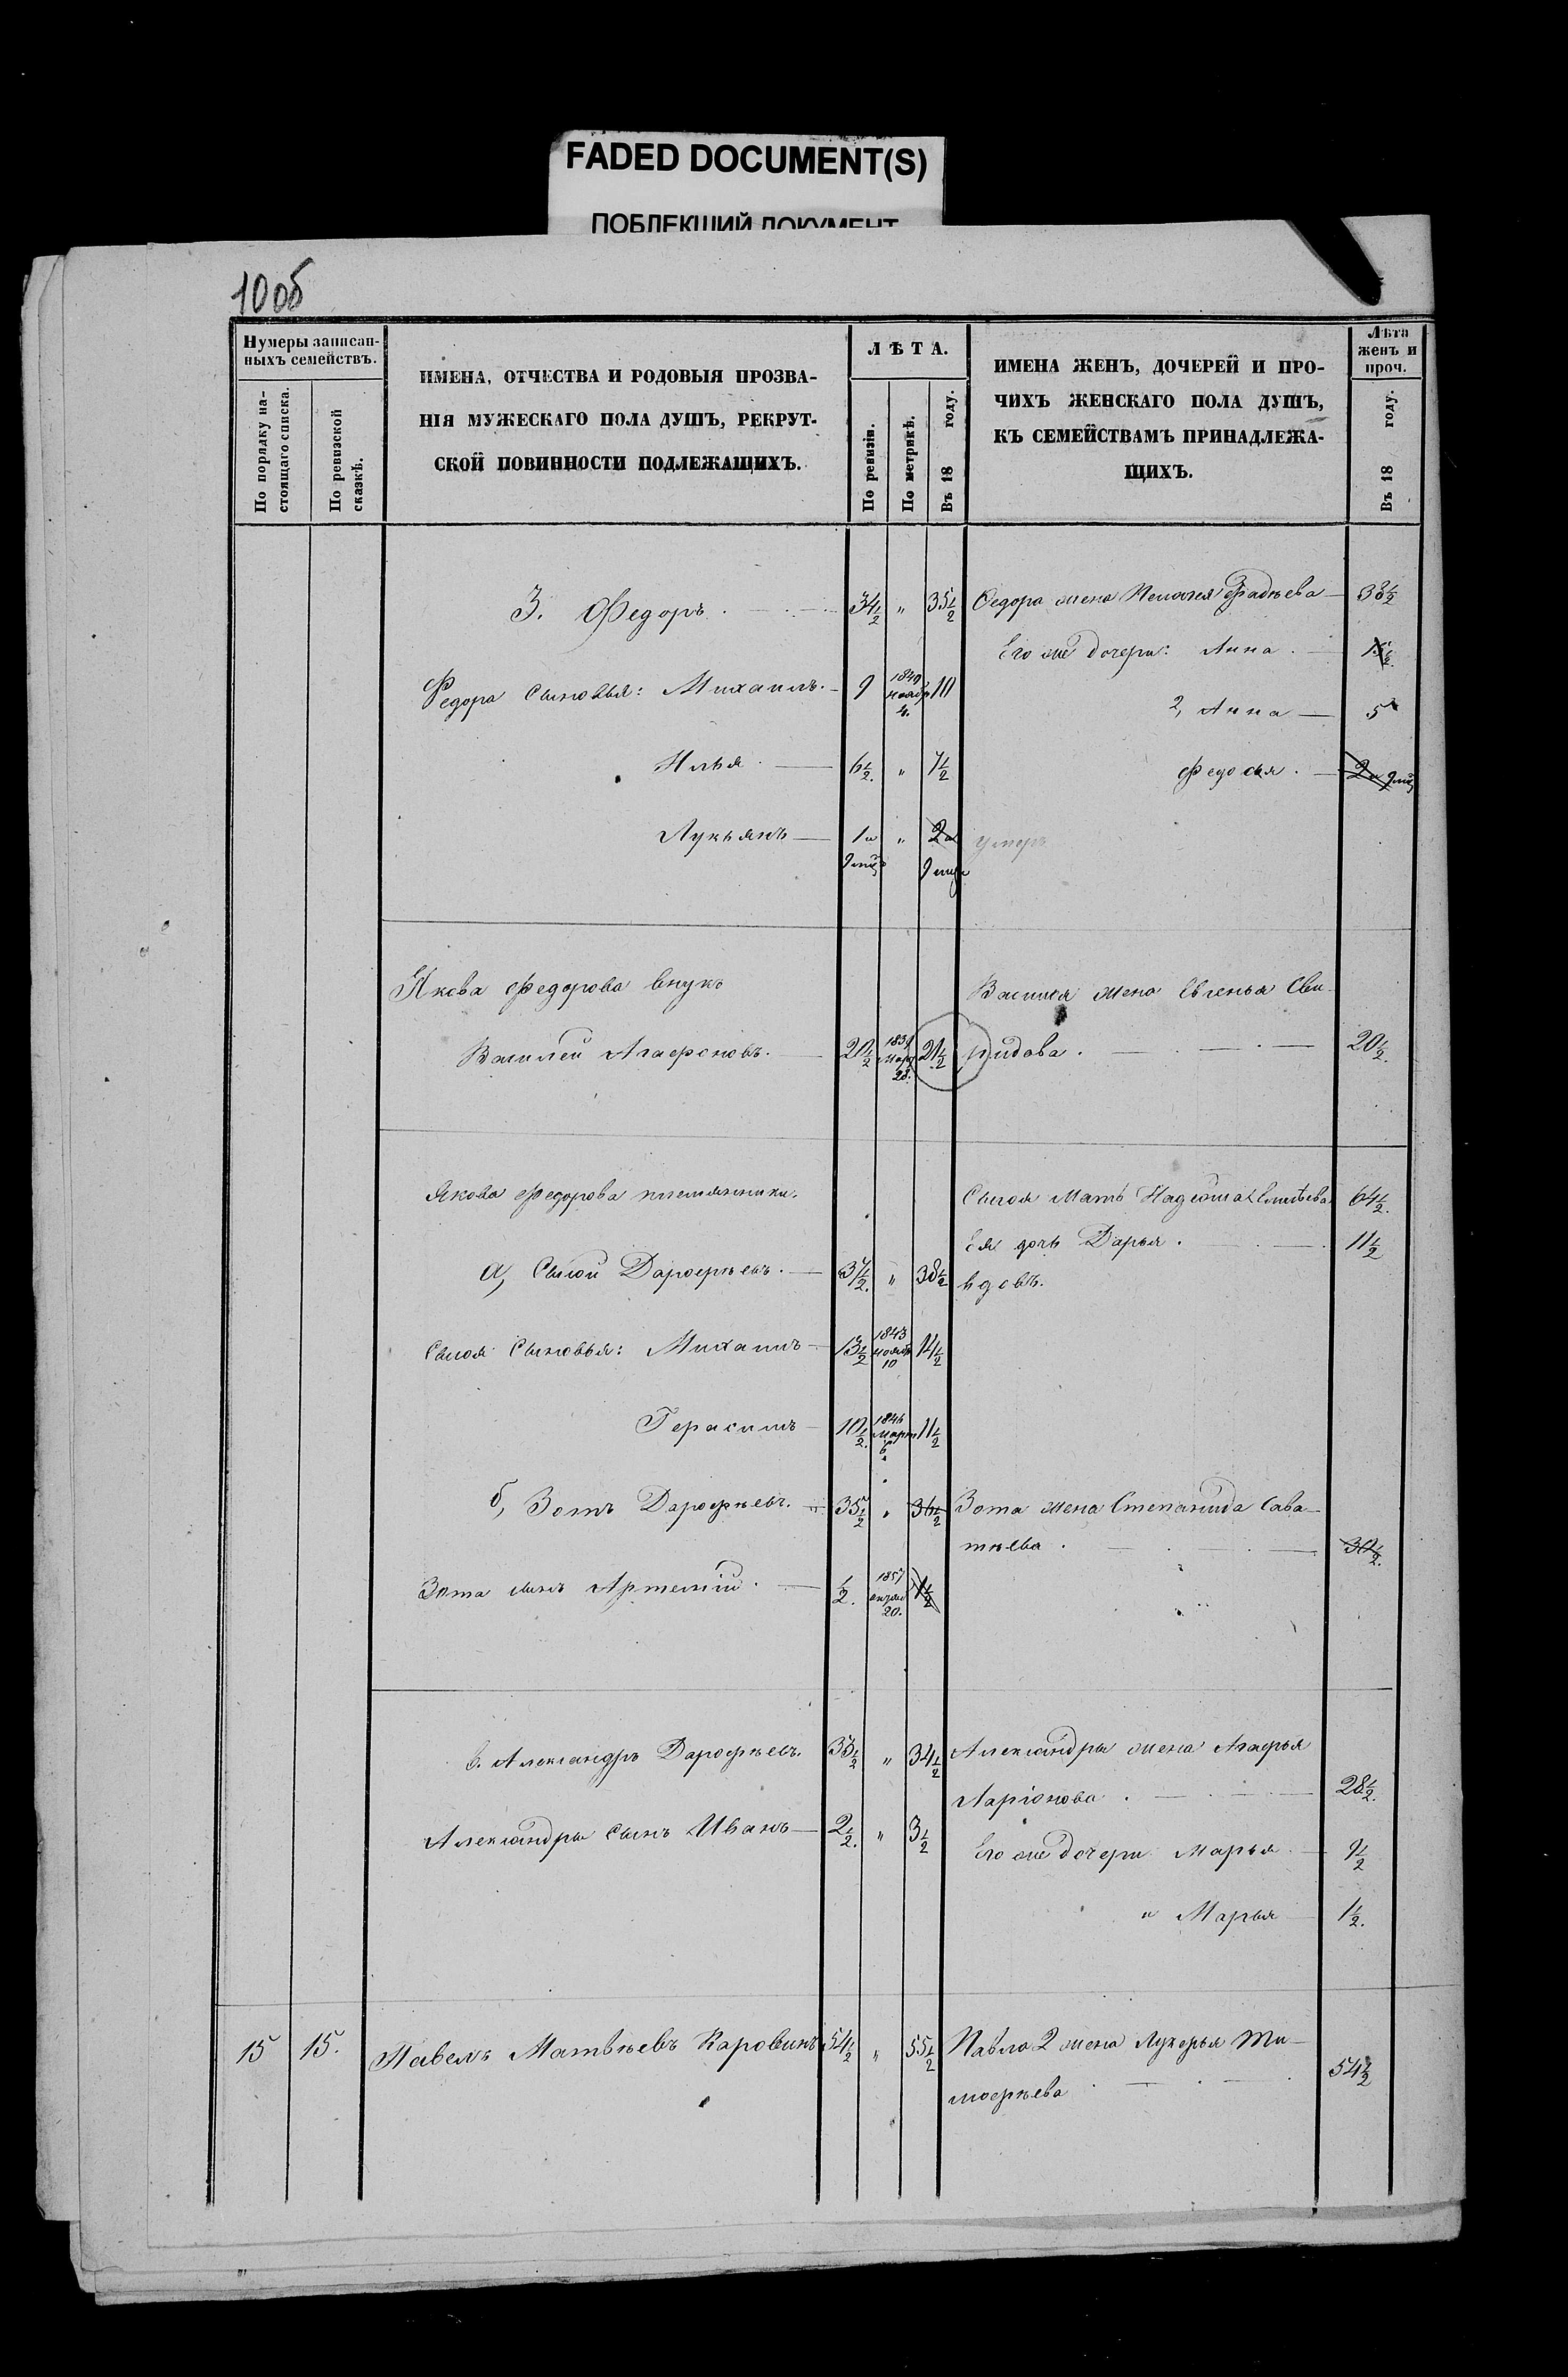 FADED DOCUMENT(S)
ПОБЛЕКШИЙ ДОКУМЕНТ
10об
Нумеры записан-
ныхъ семействъ.
По порядку на-
стоящаго списка.
По ревизской
сказкѣ.
ИМЕНА, ОТЧЕСТВА И РОДОВЫЯ ПРОЗВА-
НІЯ МУЖЕСКАГО ПОЛА ДУШЪ, РЕКРУТ-
СКОЙ ПОВИННОСТИ ПОДЛЕЖАЩИХЪ.
ЛѢТА.
По ревизіи.
По метрикѣ.
Въ 18 году.
ИМЕНА ЖЕНЪ, ДОЧЕРЕЙ И ПРО-
ЧИХЪ ЖЕНСКАГО ПОЛА ДУШЪ,
КЪ СЕМЕЙСТВАМЪ ПРИНАДЛЕЖА-
ЩИХЪ.
Лѣта
женъ и
проч.
Въ 18 году.
3. Федоръ. 34½ " 35½ Федора жена Пелагея Фадѣева 33½
Его же дочери: Анна. 15½.
Федора сыновья: Михаилъ. 9 1849 ноябр 4. 10
2, Анна 5
Илья. 6½. " 7½ Федосья. 2 и 9 мѣс
Лукьянъ 1 и 9 мѣс " 2 и 9 мѣс умеръ
Якова Федорова внукъ Василья жена Евгенья Сви-
Василей Агафоновъ. 20½ Мар 28. 21½ ридова. 20½.
Якова Федорова племянники. Сысоя мать Надежда 64½.
Ея дочь Дарья. 11½
а, Сысой Дарофѣевъ. 37½. " 38½ вдовъ.
Сысоя сыновья: Михаилъ 13½ 1843 ноябр 10 14½
Герасимъ 10½. 1846 март 6 11½
б, Зотъ Дарофѣевъ. 35½ " 36½ Зота жена Степанида Сава-
тѣева. 30½.
Зота сынъ Артемій. ½. 1857 апрѣл 20. 1½
в. Александръ Дарофѣевъ. 33½ " 34½ Александры жена Агафья
Ларіонова. 28½.
Александры сынъ Иванъ 2½. " 3½ Его же дочери Марья. 9½
" Марья 1½.
15 15. Павелъ Матвѣевъ Каровинъ 54½ " 55½ Павла 2 жена Лукерья Ти-
мофѣева 54½